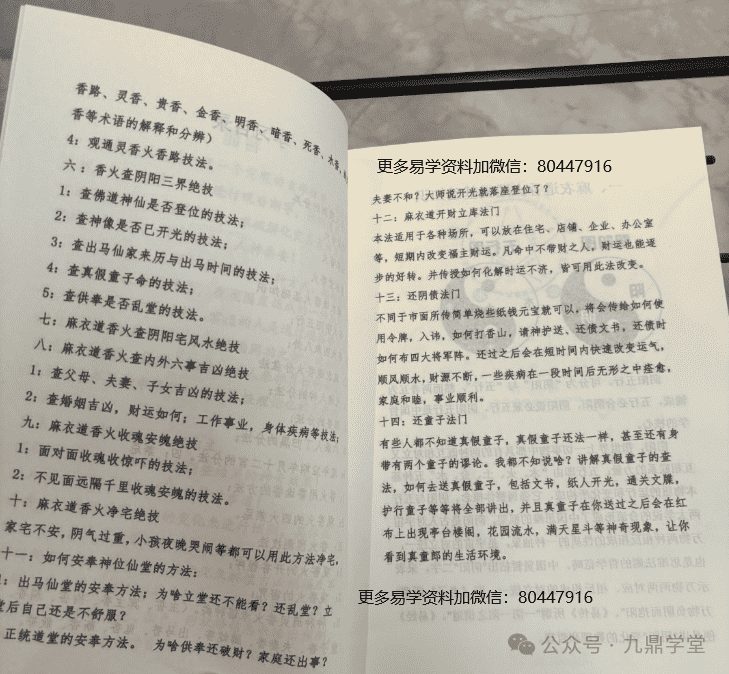 香路、灵香、贵香、金香、明香、暗香、死香、木香、
香等术语的解释和分辨）
4：观通灵香火香路技法。
六：香火查阴阳三界绝技
1：查佛道神仙是否登位的技法；
2：查神像是否已开光的技法；
3：查出马仙家来历与出马时间的技法；
4：查真假童子命的技法；
5：查供奉是否乱堂的技法。
七：麻衣道香火查阴阳宅风水绝技
八：麻衣道香火查内外六事吉凶绝技
1：查父母、夫妻、子女吉凶的技法；
2：查婚姻吉凶，财运如何；工作事业，身体疾病等技法；
九：麻衣道香火收魂安魄绝技
1：面对面收魂收惊吓的技法；
2：不见面远隔千里收魂安魄的技法。
十：麻衣道香火净宅绝技
家宅不安，阴气过重，小孩夜晚哭闹等都可以用此方法净宅，
十一：如何安奉神位仙堂的方法：
：出马仙堂的安奉方法；为啥立堂还不能看？还乱堂？立
堂后自己还是不舒服？
正统道堂的安奉方法。 为啥供奉还破财？家庭还出事？
更多易学资料加微信：80447916
夫妻不和？大师说开光就落座登位了？
十二：麻衣道开财立库法门
本法适用于各种场所，可以放在住宅、店铺、企业、办公室
等，短期内改变福主财运。凡命中不带财之人，财运也能逐
步的好转。并传授如何化解时运不济，皆可用此法改变。
十三：还阴债法门
不同于市面所传简单烧些纸钱元宝就可以，将会传给如何使
用令牌，入讳，如何打香山，请神护送、还债文书，还债时
如何布四大将军阵。还过之后会在短时间内快速改变运气，
顺风顺水，财源不断，一些疾病在一段时间后无形之中痊愈，
家庭和睦，事业顺利。
十四：还童子法门
有些人都不知道真假童子，真假童子还法一样，甚至还有身
带有两个童子的谬论。我都不知说啥？讲解真假童子的查
法，如何去送真假童子，包括文书，纸人开光，通关文牒，
护行童子等等将全部讲出，并且真童子在你送过之后会在红
布上出现亭台楼阁，花园流水，满天星斗等神奇现象，让你
看到真童郎的生活环境。
更多易学资料加微信：80447916
公众号·九鼎学堂